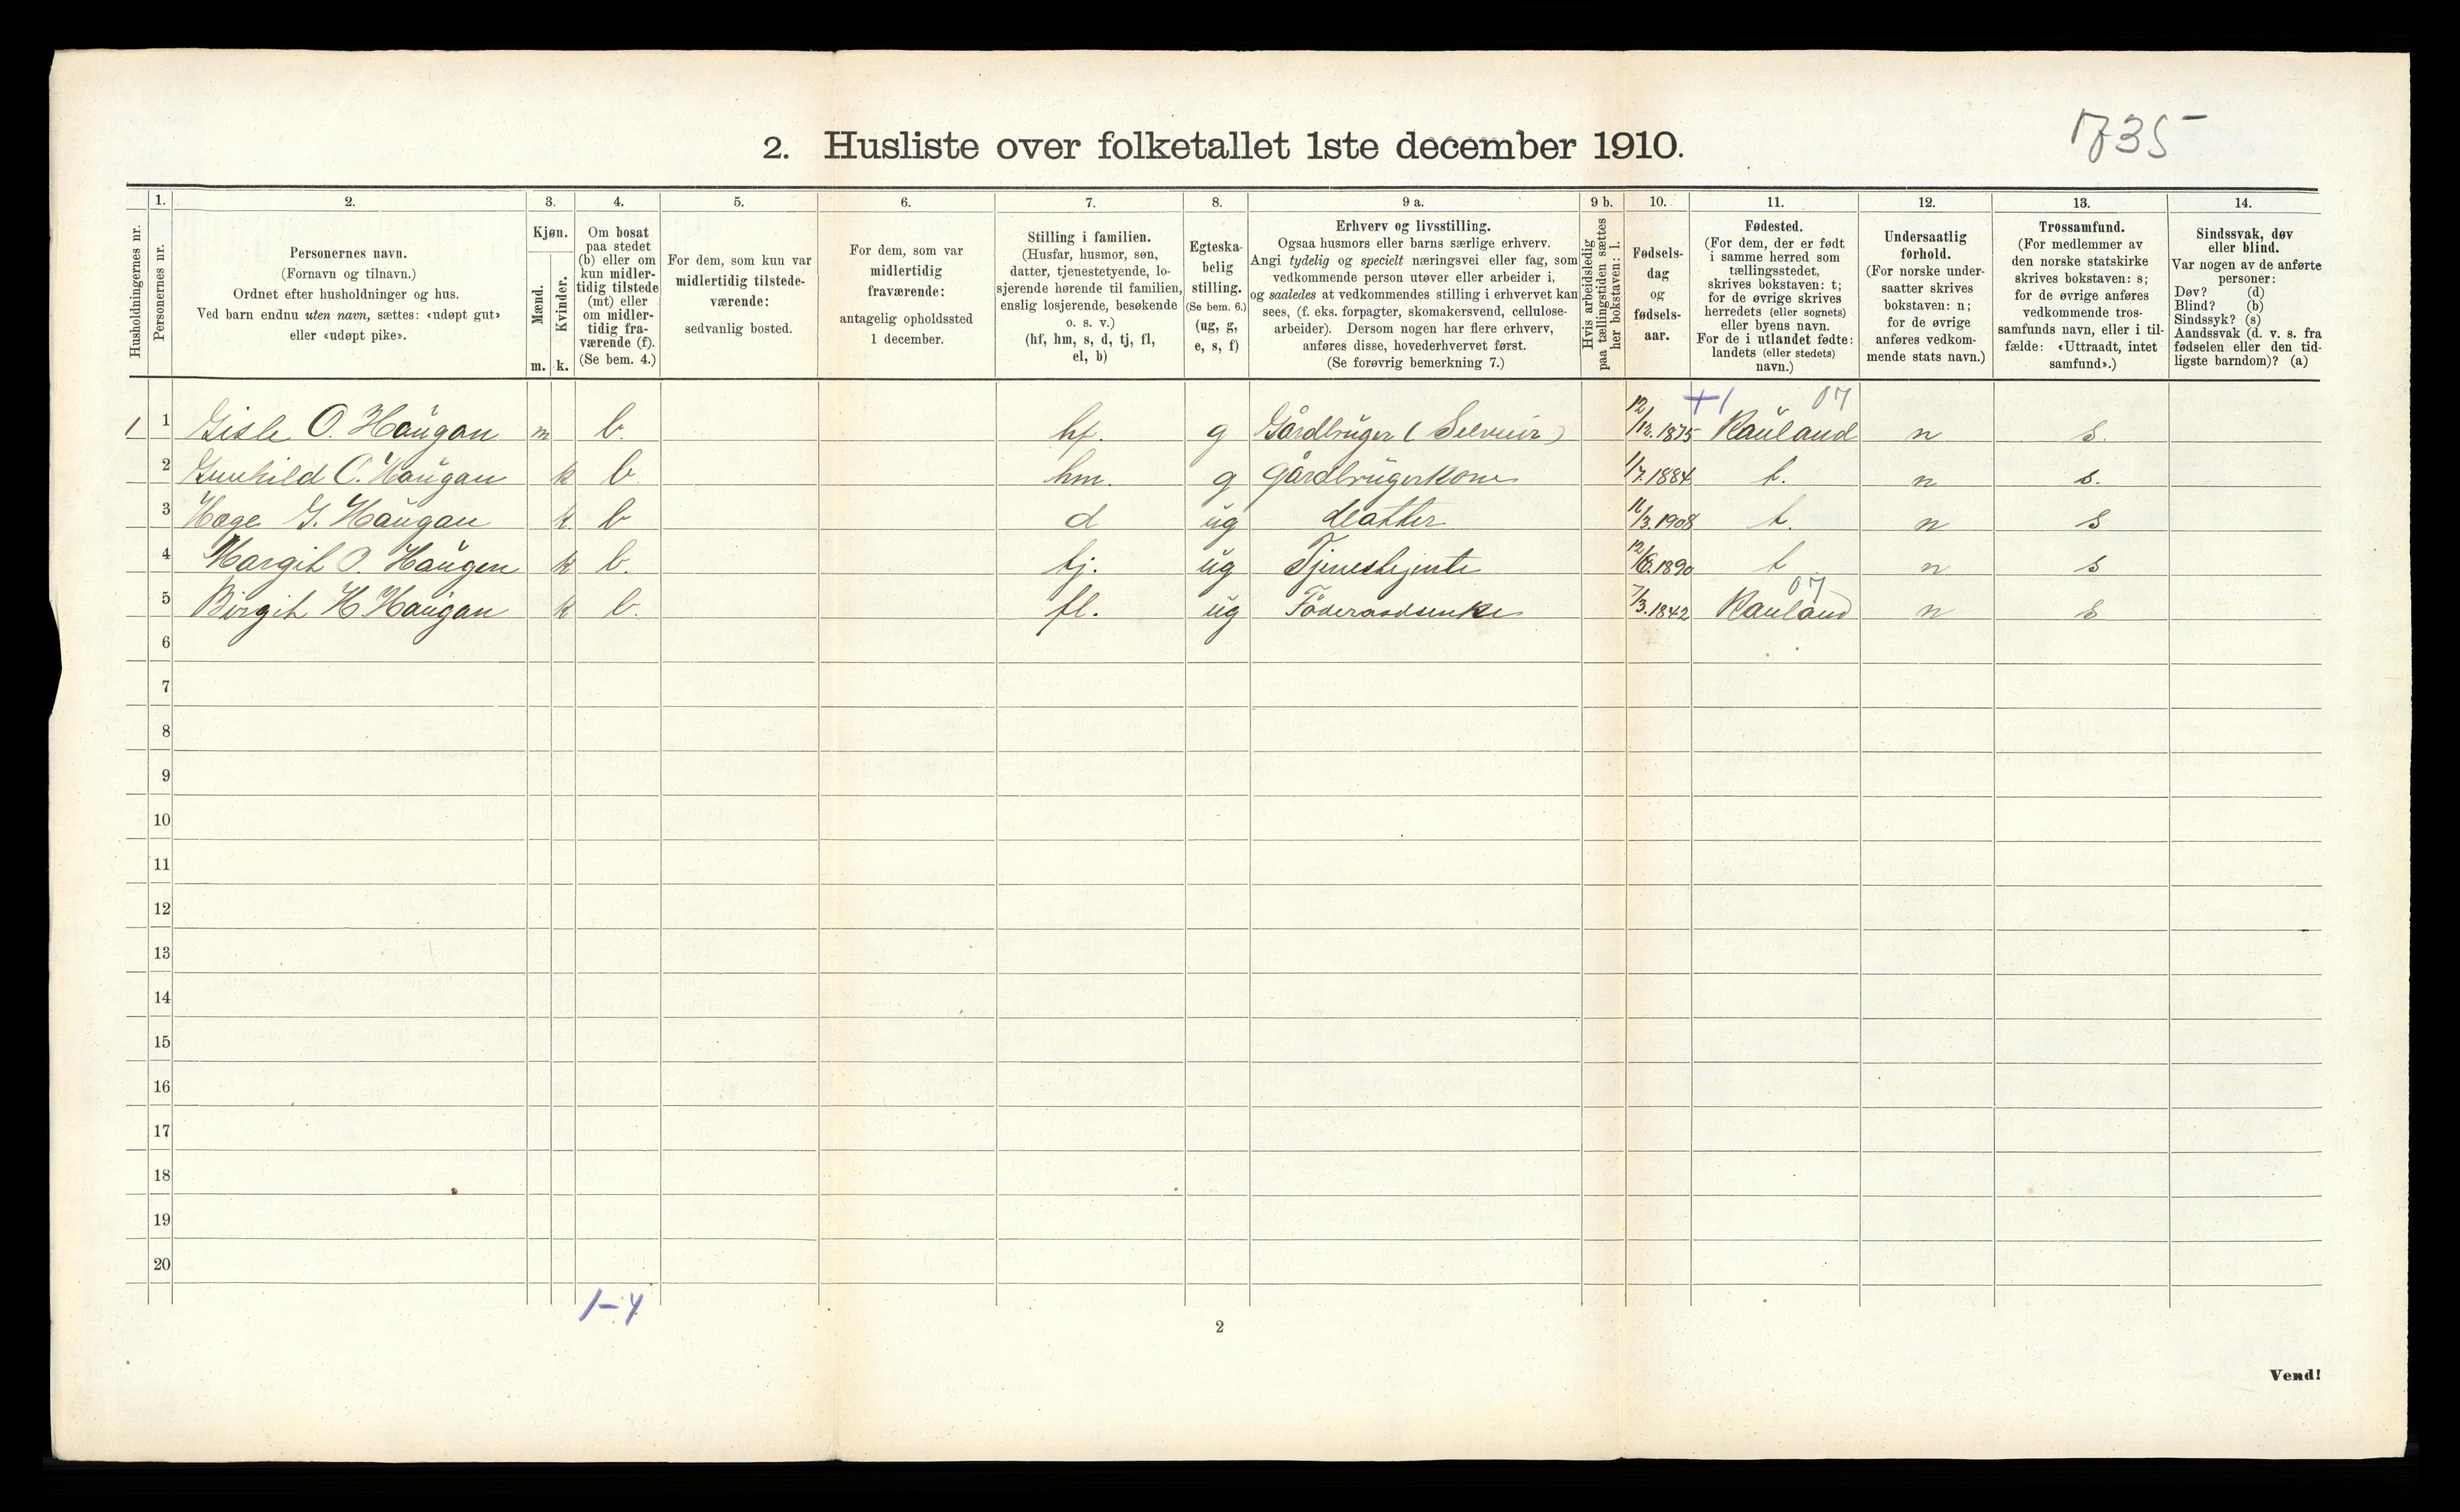 2. Husliste over folketallet 1ste december 1910.
1735
Husholdningernes nr.
1.
Personernes nr.
2.
Personernes navn.
(Fornavn og tilnavn.)
Ordnet efter husholdninger og hus.
Ved barn endnu uten navn, sættes: «udøpt gut»
eller «udøpt pike».
3.
Kjøn.
Mænd.
Kvinder.
m. k.
4.
Om bosat
paa stedet
(b) eller om
kun midler-
tidig tilstede
(mt) eller
om midler-
tidig fra-
værende (f).
(Se bem. 4.)
5.
For dem, som kun var
midlertidig tilstede-
værende:
sedvanlig bosted.
6.
For dem, som var
midlertidig
fraværende:
antagelig opholdssted
1 december.
7.
Stilling i familien.
(Husfar, husmor, søn,
datter, tjenestetyende, lo-
sjerende hørende til familien,
enslig losjerende, besøkende
o. s. v.)
(hf, hm, s, d, tj, fl,
el, b)
8.
Egteska-
belig
stilling.
(Se bem. 6.)
(ug, g,
e, s, f)
9 a.
Erhverv og livsstilling.
Ogsaa husmors eller barns særlige erhverv.
Angi tydelig og specielt næringsvei eller fag, som
vedkommende person utøver eller arbeider i,
og saaledes at vedkommendes stilling i erhvervet kan
sees, (f. eks. forpagter, skomakersvend, cellulose-
arbeider). Dersom nogen har flere erhverv,
anføres disse, hovederhvervet først.
(Se forøvrig bemerkning 7.)
9 b.
Hvis arbeidsledig
paa tællingstiden sættes
her bokstaven: l.
10.
Fødsels-
dag
og
fødsels-
aar.
11.
Fødested.
(For dem, der er født
i samme herred som
tællingsstedet,
skrives bokstaven: t;
for de øvrige skrives
herredets (eller sognets)
eller byens navn.
For de i utlandet fødte:
landets (eller stedets)
navn.)
12.
Undersaatlig
forhold.
(For norske under-
saatter skrives
bokstaven: n;
for de øvrige
anføres vedkom-
mende stats navn.)
13.
Trossamfund.
(For medlemmer av
den norske statskirke
skrives bokstaven: s;
for de øvrige anføres
vedkommende tros-
samfunds navn, eller i til-
fælde: «Uttraadt, intet
samfund».)
14.
Sindssvak, døv
eller blind.
Var nogen av de anførte
personer:
Døv? (d)
Blind? (b)
Sindssyk? (s)
Aandssvak (d. v. s. fra
fødselen eller den tid-
ligste barndom)? (a)
+1 07
1 1 Gisle O. Haugan m b. hf. g Gårdbruger (Selveier) 12/12.1875 Rauland n s.
2 Gunhild O. Haugan k b hm. g Gårdbrugerkone 1/7.1884 t. n s.
3 Hæge G. Haugan k b d ug datter 16/3.1908 t. n s
4 Margit O. Haugen k b. tj. ug Tjenestejente 12/8.1890 t n s
07
5 Birgit H. Haugan k b. fl. ug Föderaadsenke 7/3.1842 Rauland n s
6
7
8
9
10
11
12
13
14
15
16
17
18
19
20
1-4
2
Vend!